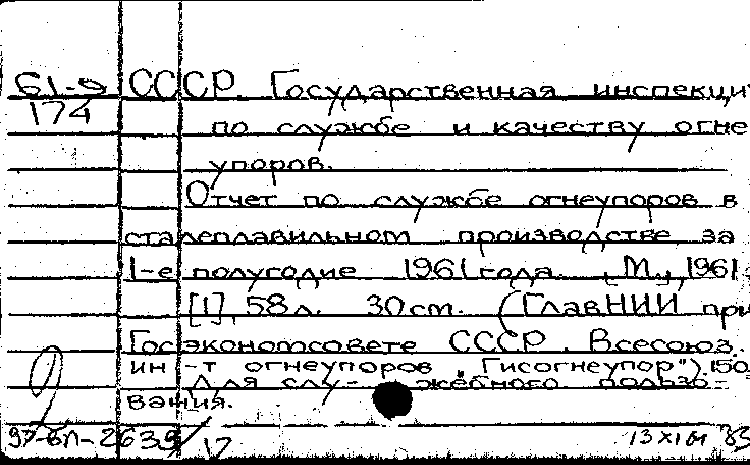 61-9 СССР. Государственная инспекци
174 по службе и качеству огне
упоров.
Отчет по службе огнеупоров в
сталеплавильном производстве за
1-е полугодие 1961 года. М., 1961
[1], 58 л. 30 см. (ГлавНИИ при
Госэкономсовете СССР. Всесоюз.
ин-т огнеупоров "Гисогнеупор"). 150
Для служебного пользо-
вания.
97-ВЛ-2639/17 13 XI 61